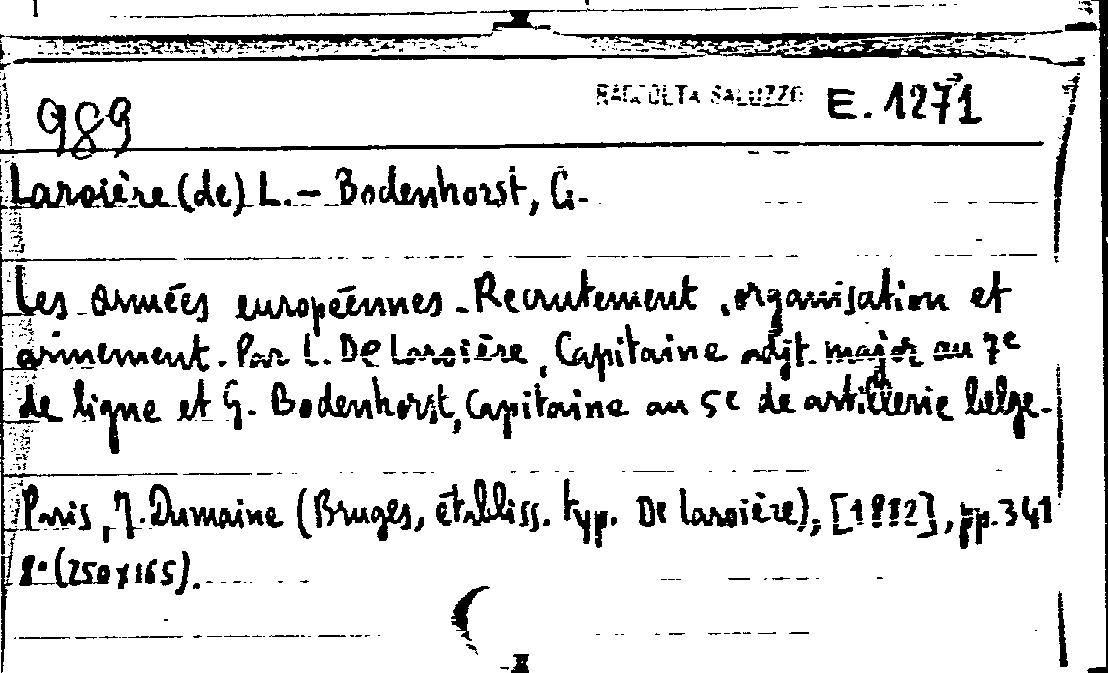 RACCOLTA SALUZZO E. 1271
989
Laroière (de) L. - Bodenhorst, G.
Les armées européennes - Recrutement, organisation et
armement. Par L. De Laroière, Capitaine adjt. major au 7e
de ligne et G. Bodenhorst, Capitaine au 5e de artillerie belge.
Paris, J. Dumaine (Bruges, établiss. typ. De Laroière), [1882], pp. 341
8° (250x165).